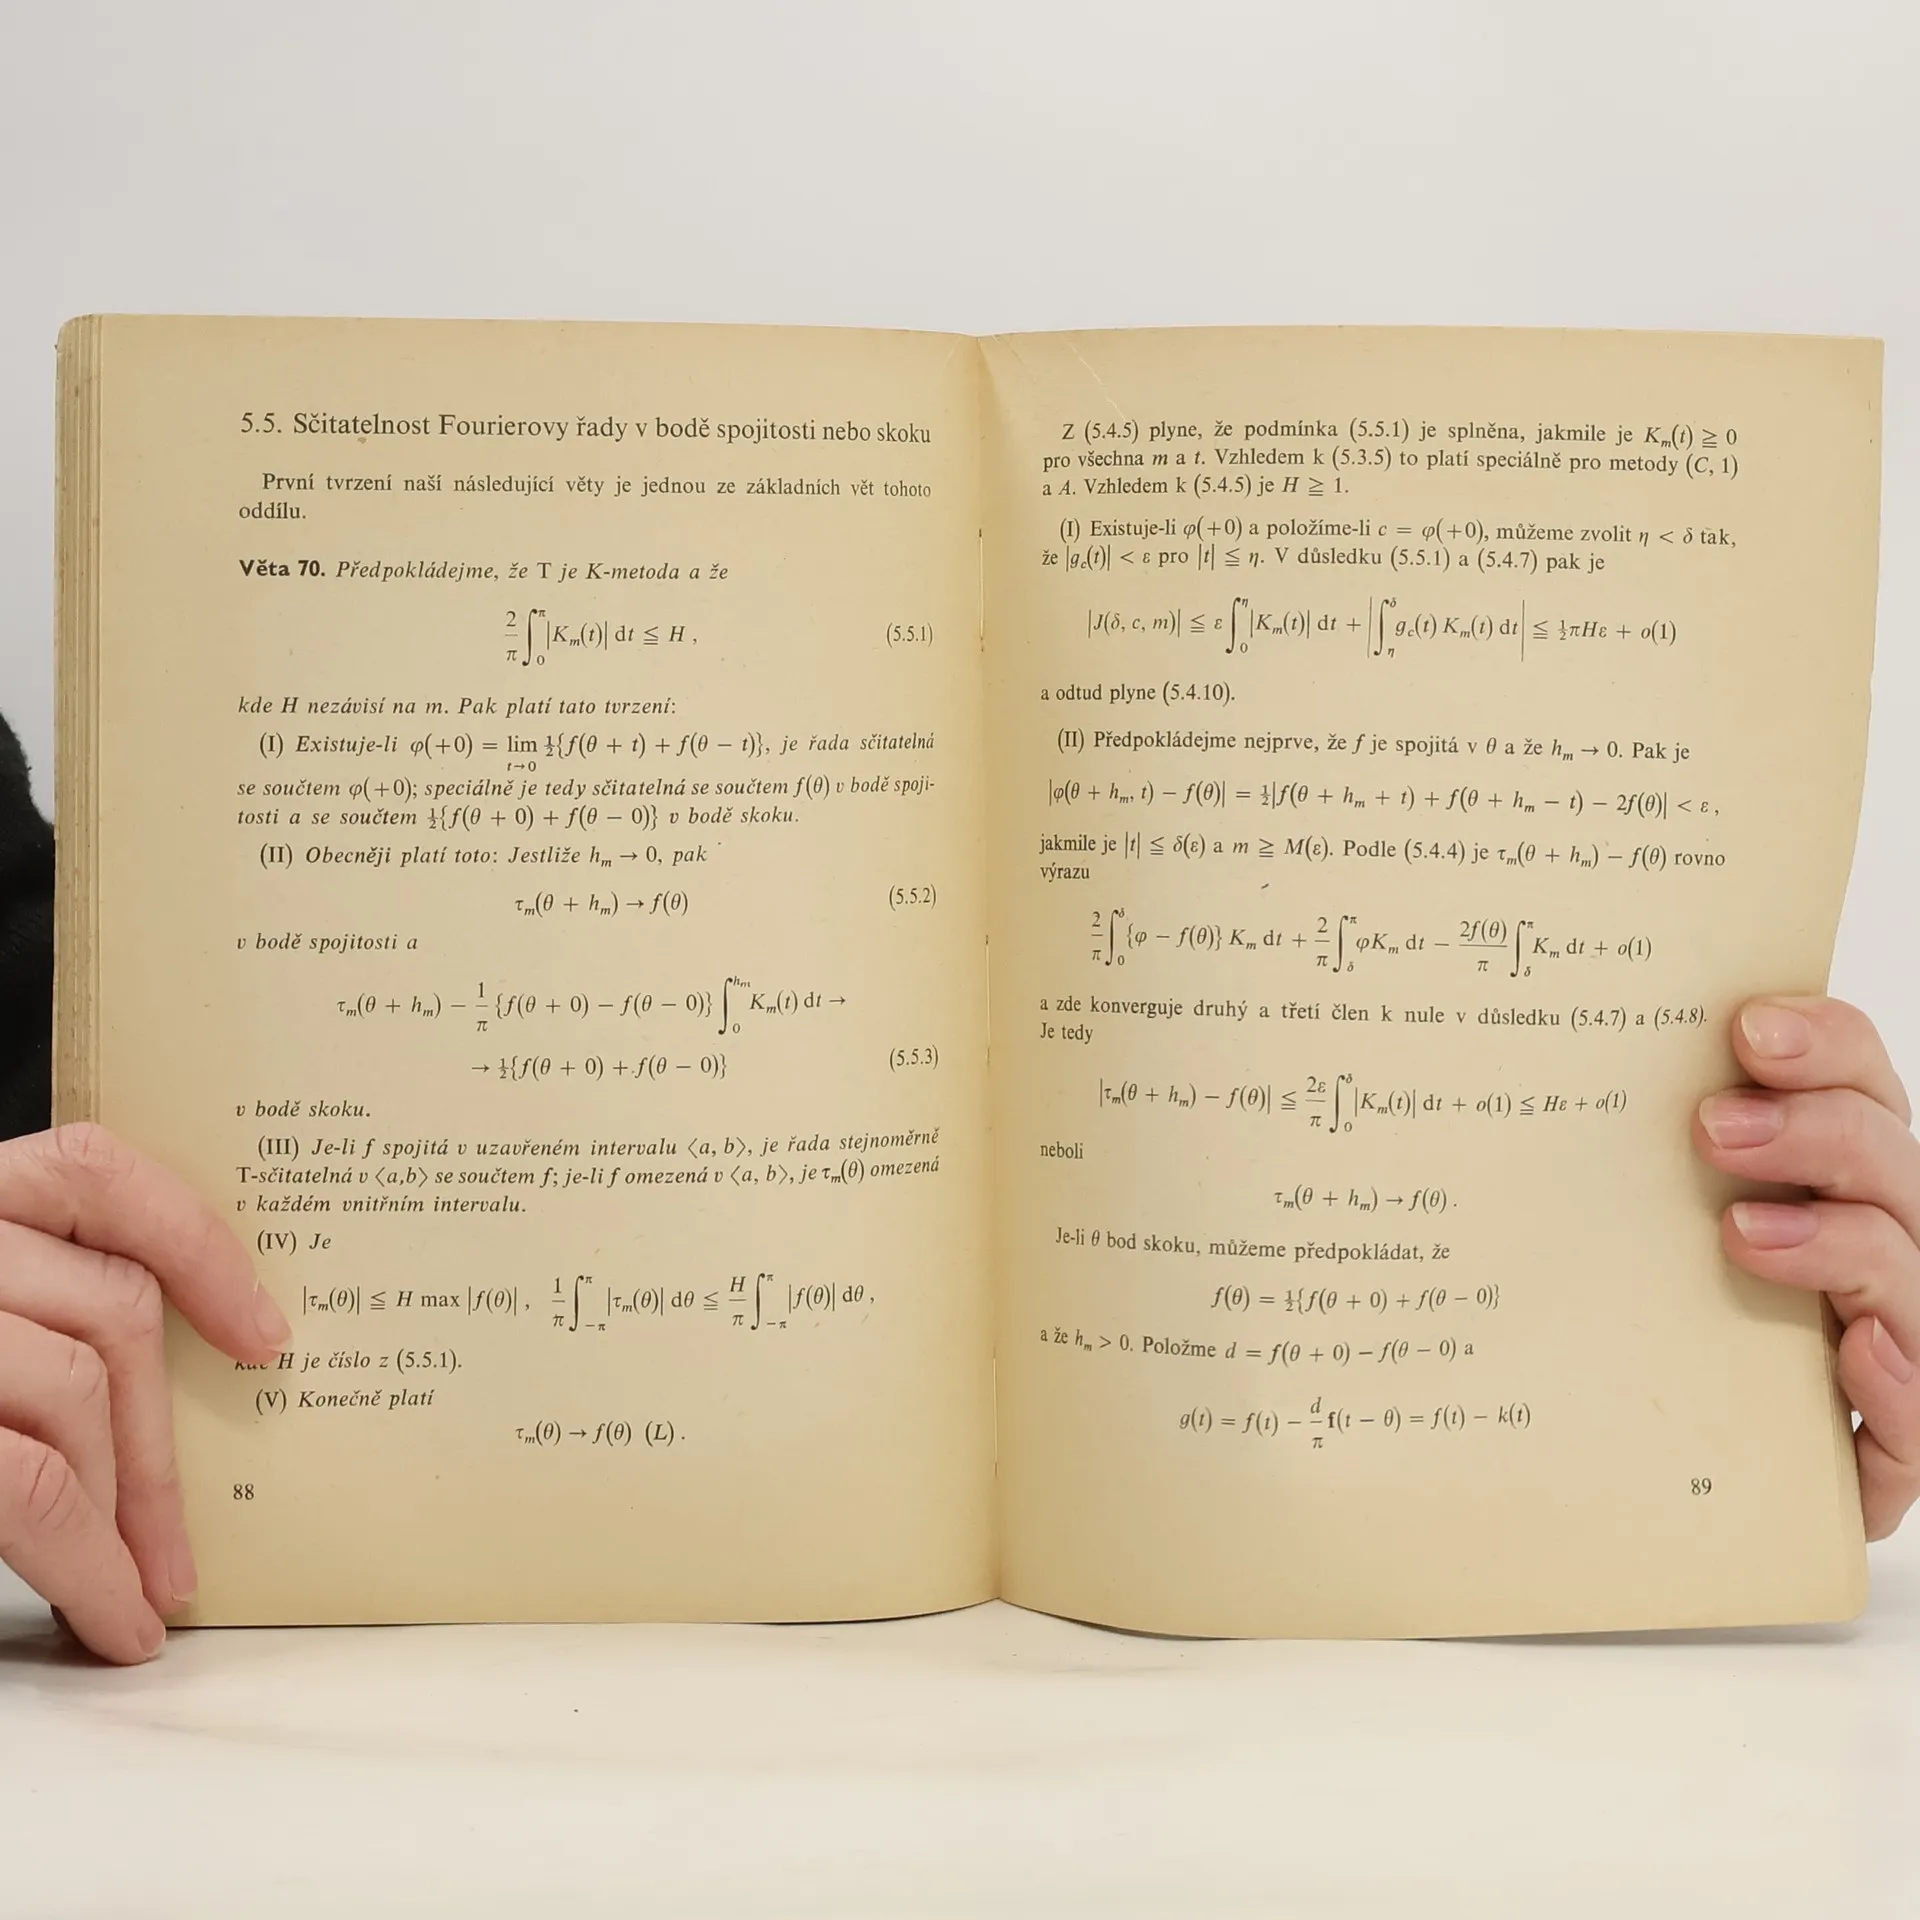 5.5. Sčitatelnost Fourierovy řady v bodě spojitosti nebo skoku
První tvrzení naší následující věty je jednou ze základních vět tohoto
oddílu.
Věta 70. Předpokládejme, že T je K-metoda a že
2/π ∫₀^π |K_m(t)| dt ≦ H , (5.5.1)
kde H nezávisí na m. Pak platí tato tvrzení:
(I) Existuje-li φ(+0) = lim_{t→0} ½{f(θ + t) + f(θ − t)}, je řada sčitatelná
se součtem φ(+0); speciálně je tedy sčitatelná se součtem f(θ) v bodě spoji-
tosti a se součtem ½{f(θ + 0) + f(θ − 0)} v bodě skoku.
(II) Obecněji platí toto: Jestliže h_m → 0, pak
τ_m(θ + h_m) → f(θ) (5.5.2)
v bodě spojitosti a
τ_m(θ + h_m) − 1/π {f(θ + 0) − f(θ − 0)} ∫₀^{h_m} K_m(t) dt →
→ ½{f(θ + 0) + f(θ − 0)} (5.5.3)
v bodě skoku.
(III) Je-li f spojitá v uzavřeném intervalu ⟨a, b⟩, je řada stejnoměrně
T-sčitatelná v ⟨a,b⟩ se součtem f; je-li f omezená v ⟨a, b⟩, je τ_m(θ) omezená
v každém vnitřním intervalu.
(IV) Je
|τ_m(θ)| ≦ H max |f(θ)| , 1/π ∫_{−π}^π |τ_m(θ)| dθ ≦ H/π ∫_{−π}^π |f(θ)| dθ ,
H je číslo z (5.5.1).
(V) Konečně platí
τ_m(θ) → f(θ) (L) .
88
Z (5.4.5) plyne, že podmínka (5.5.1) je splněna, jakmile je K_m(t) ≧ 0
pro všechna m a t. Vzhledem k (5.3.5) to platí speciálně pro metody (C, 1)
a A. Vzhledem k (5.4.5) je H ≧ 1.
(I) Existuje-li φ(+0) a položíme-li c = φ(+0), můžeme zvolit η < δ tak,
že |g_c(t)| < ε pro |t| ≦ η. V důsledku (5.5.1) a (5.4.7) pak je
|J(δ, c, m)| ≦ ε ∫₀^η |K_m(t)| dt + |∫_η^δ g_c(t) K_m(t) dt| ≦ ½πHε + o(1)
a odtud plyne (5.4.10).
(II) Předpokládejme nejprve, že f je spojitá v θ a že h_m → 0. Pak je
|φ(θ + h_m, t) − f(θ)| = ½|f(θ + h_m + t) + f(θ + h_m − t) − 2f(θ)| < ε ,
jakmile je |t| ≦ δ(ε) a m ≧ M(ε). Podle (5.4.4) je τ_m(θ + h_m) − f(θ) rovno
výrazu
2/π ∫₀^δ {φ − f(θ)} K_m dt + 2/π ∫_δ^π φK_m dt − 2f(θ)/π ∫_δ^π K_m dt + o(1)
a zde konverguje druhý a třetí člen k nule v důsledku (5.4.7) a (5.4.8).
Je tedy
|τ_m(θ + h_m) − f(θ)| ≦ 2ε/π ∫₀^δ |K_m(t)| dt + o(1) ≦ Hε + o(1)
neboli
τ_m(θ + h_m) → f(θ) .
Je-li θ bod skoku, můžeme předpokládat, že
f(θ) = ½{f(θ + 0) + f(θ − 0)}
a že h_m > 0. Položme d = f(θ + 0) − f(θ − 0) a
g(t) = f(t) − d/π f(t − θ) = f(t) − k(t)
89